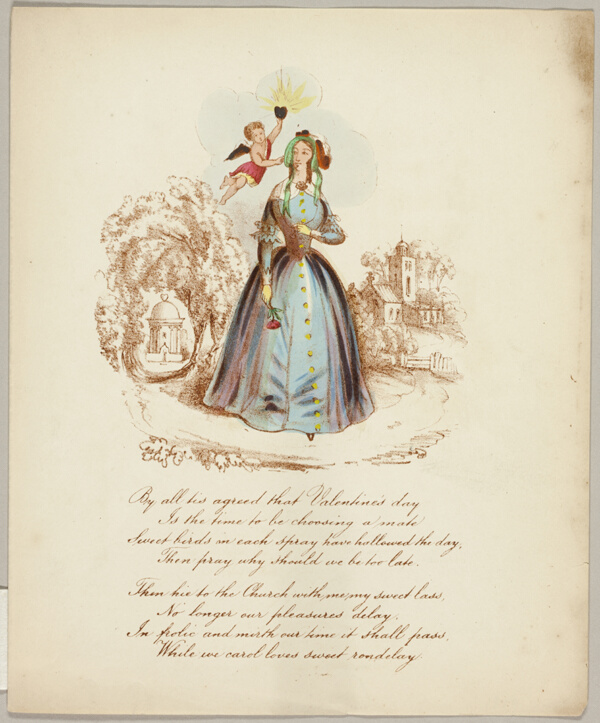 By all tis agreed that Valentine's day
Is the time to be choosing a mate
Sweet birds on each spray have hallowed the day,
Then pray why should we be too late.
Then hie to the Church with me, my sweet lass,
No longer our pleasures delay.
In frolic and mirth our time it shall pass,
While we carol loves sweet rondelay